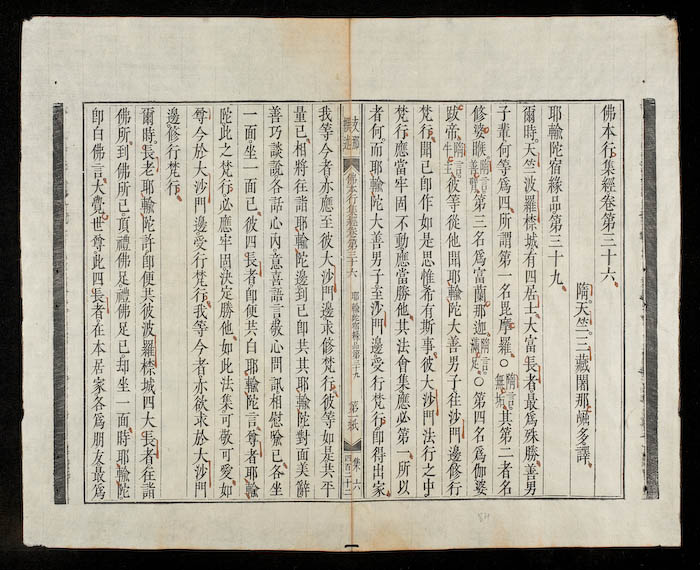 佛本行集經卷第三十六
隋天竺三藏闍那崛多譯
耶輸陀宿緣品第三十九
爾時天竺波羅㮈城有四居士大富長者最爲殊勝善男
子輩何等爲四所謂第一名毘摩羅○隋言無垢其第二者名
修婆睺隋言善臂第三名爲富蘭那迦隋言滿足○第四名爲伽婆
跋帝隋言牛主彼等從他聞耶輸陀大善男子往沙門邊修行
梵行聞已卽作如是思惟希有斯事彼大沙門法行之中
梵行應當牢固不動應當勝他其法會集應必第一所以
者何而耶輸陀大善男子至沙門邊受行梵行卽得出家
支那撰述
佛本行集經卷第三十六
耶輸陀宿緣品第三十九
第一紙
集六
四百二十二
我等今者亦應至彼大沙門邊求修梵行彼等如是共平
量已相將往詣耶輸陀邊到已卽共其耶輸陀對面美辭
善巧談說各話心內意喜語言敬心問訊相慰喻已各坐
一面坐一面已彼四長者卽便共白耶輸陀言尊者耶輸
陀此之梵行必應牢固決定勝他如此法集可敬可愛如
尊今於大沙門邊受行梵行我等今者亦欲求於大沙門
邊修行梵行
爾時長老耶輸陀許卽便共彼波羅㮈城四大長者往詣
佛所到佛所已頂禮佛足禮佛足已却坐一面時耶輸陀
卽白佛言大覺世尊此四長者在本居家各爲朋友最爲